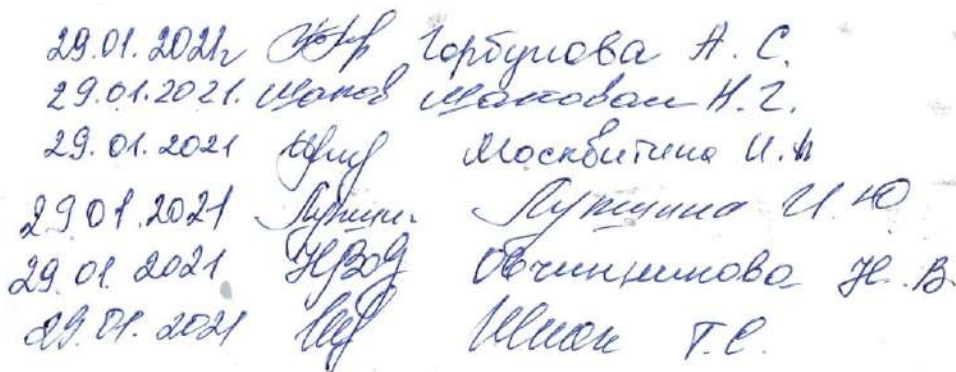 29.01.2021г Горбунова А. С.
29.01.2021. Н. Г.
29.01.2021 Москвитина И. А
29.01.2021 Лупши. Лупшина И. Ю
29.01.2021 НВОв Овчинникова Н. В.
29.01.2021 Шпак Т. С.